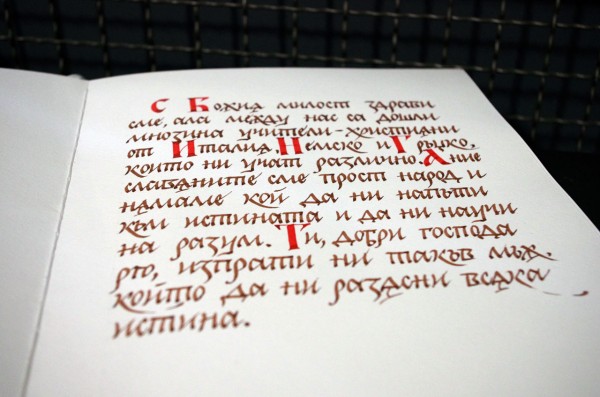 С Божия милост здрави
сме, ала между нас са дошли
мнозина учители-християни
от Италия, Немско и Гръцко,
които ни учат различно. А ние
славяните сме прост народ и
нямаме кой да ни напъти
към истината и да ни научи
на разум. Ти, добри господа
рю, изпрати ни такъв мъж,
който да ни разясни всяка
истина.